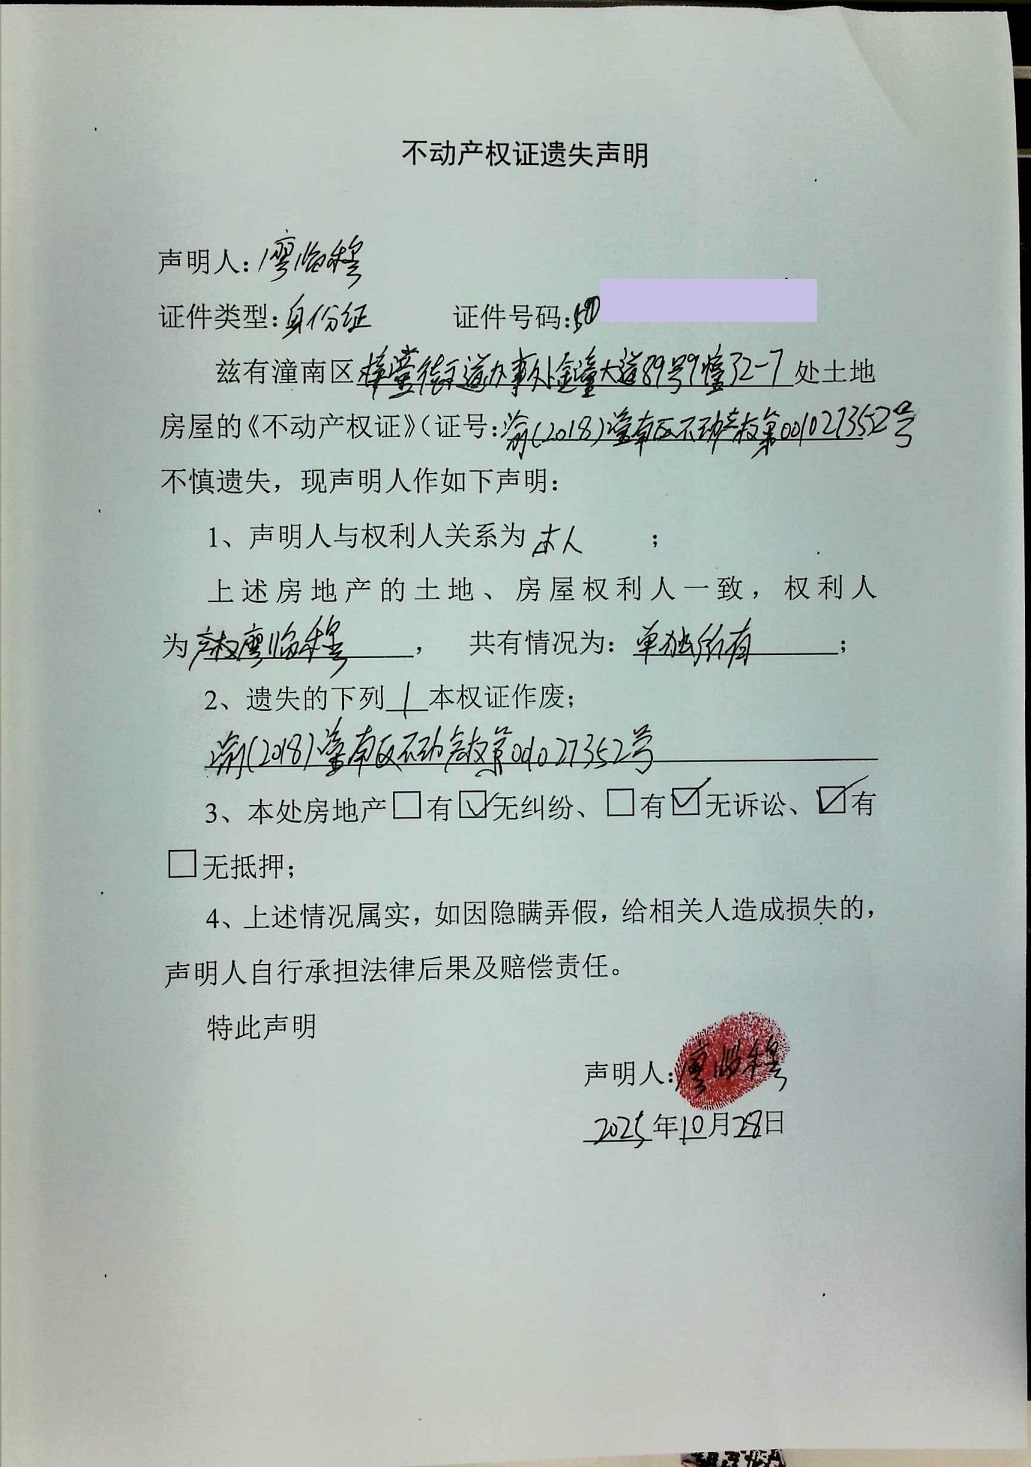 不动产权证遗失声明
声明人：廖临稷
证件类型：身份证 证件号码：50
兹有潼南区梓潼街道办事处金潼大道89号9幢32-7处土地
房屋的《不动产权证》（证号：渝(2018)潼南区不动产权第001027352号
不慎遗失，现声明人作如下声明：
1、声明人与权利人关系为本人；
上述房地产的土地、房屋权利人一致，权利人
为 廖临稷，共有情况为：单独所有；
2、遗失的下列 1 本权证作废；
渝(2018)潼南区不动产权第001027352号
3、本处房地产□有☑无纠纷、□有☑无诉讼、☑有
□无抵押；
4、上述情况属实，如因隐瞒弄假，给相关人造成损失的，
声明人自行承担法律后果及赔偿责任。
特此声明
声明人：廖临稷
2025年10月28日